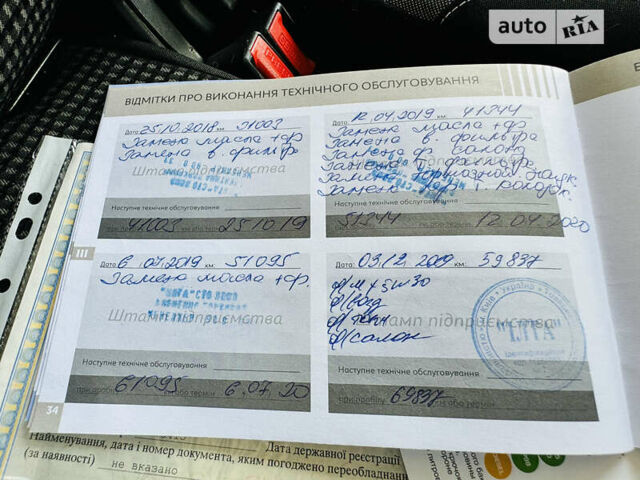 auto RIA
ВІДМІТКИ ПРО ВИКОНАННЯ ТЕХНІЧНОГО ОБСЛУГОВУВАННЯ
Дата 25.10.2018 км: 31003
Замена масла + ф.
Замена в. фильтр
Штамп підприємства
Наступне технічне обслуговування
41003 25.10.19
Дата: 12.04.2019 км: 41344
Замена масла + ф
Замена в. фильтра
Замена ф. салона
Замена т. фильтр.
Замена тормозной жидк.
Замена
Наступне технічне обслуговування
51344 12.04.2020
III
Дата 6.07.2019 км: 51095
Замена масла + ф.
Штамп підприємства
Наступне технічне обслуговування
при пробігу 61095 6.07.20
Дата: 03.12.2020 км: 59837
ф/м + 5w30
ф/возд
ф/салон
Штамп підприємства
Київ Україна
Наступне технічне обслуговування
при пробігу 69837 км або термін
34
Найменування, дата і номер документа, яким погоджено переобладнан
Дата державної реєстрації
(за наявності) не вказано